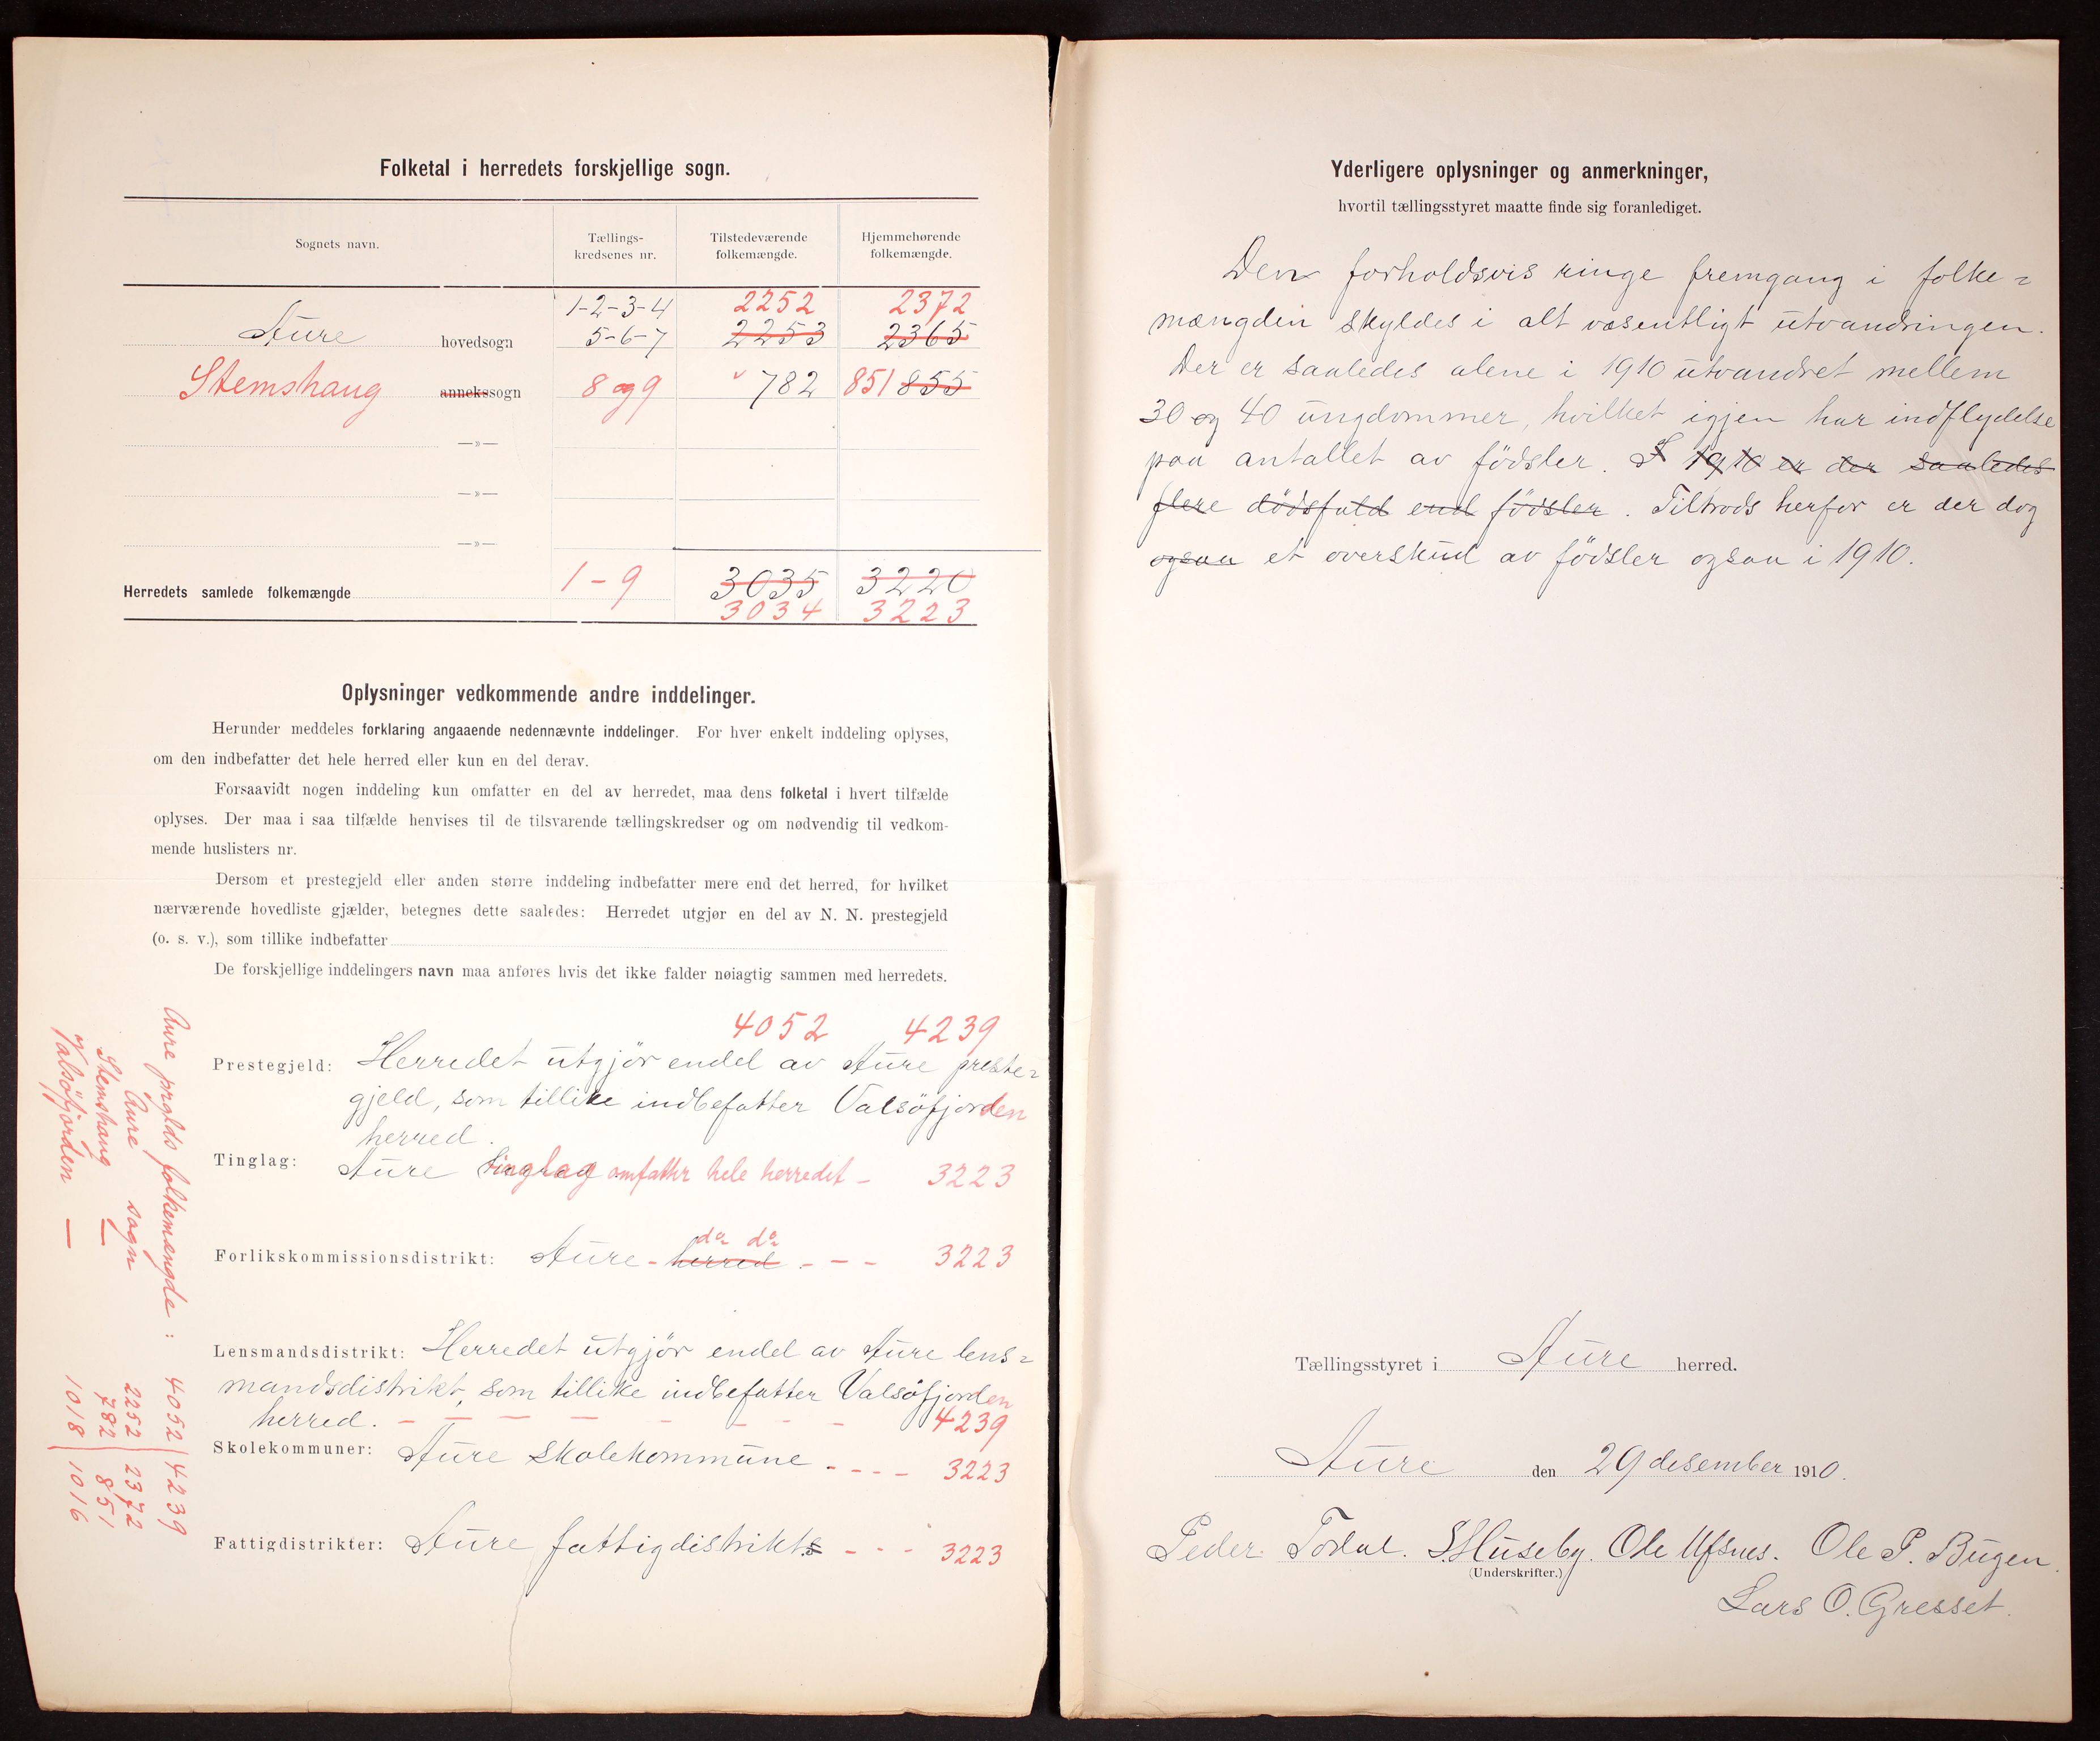 Folketal i herredets forskjellige sogn.
Sognets navn.
Tællings-
kredsenes nr.
Tilstedeværende
folkemængde.
Hjemmehørende
folkemængde.
1-2-3-4 2252 2372
Aure hovedsogn 5-6-7 2253 2365
Stemshaug annekssogn 8 og 9 782 851 855
—»—
—»—
—»—
Herredets samlede folkemængde 1-9 3035 3220
3034 3223
Oplysninger vedkommende andre inddelinger.
Herunder meddeles forklaring angaaende nedennævnte inddelinger. For hver enkelt inddeling oplyses,
om den indbefatter det hele herred eller kun en del derav.
Forsaavidt nogen inddeling kun omfatter en del av herredet, maa dens folketal i hvert tilfælde
oplyses. Der maa i saa tilfælde henvises til de tilsvarende tællingskredser og om nødvendig til vedkom-
mende huslisters nr.
Dersom et prestegjeld eller anden større inddeling indbefatter mere end det herred, for hvilket
nærværende hovedliste gjælder, betegnes dette saaledes: Herredet utgjør en del av N. N. prestegjeld
(o. s. v.), som tillike indbefatter
De forskjellige inddelingers navn maa anføres hvis det ikke falder nøiagtig sammen med herredets.
4052 4239
Prestegjeld: Herredet utgjör endel av Aure preste=
gjeld, som tillike indbefatter Valsöfjorden
herred.
Tinglag: Aure tinglag omfatter hele herredet - 3223
do do
Forlikskommissionsdistrikt: Aure - herred. - - - 3223
Lensmandsdistrikt: Herredet utgjör endel av Aure lens=
mandsdistrikt, som tillike indbefatter Valsöfjorden
herred. - - - - - - - - 4239
Skolekommuner: Aure skolekommune - - - - 3223
Fattigdistrikter: Aure fattigdistrikts - - - 3223
Aure prgjlds folkemængde: 4052 4239
Aure sogn 2252 2372
Stemshaug — 782 851
Valsöfjorden — 1018 1016
Yderligere oplysninger og anmerkninger,
hvortil tællingsstyret maatte finde sig foranlediget.
Den forholdsvis ringe fremgang i folke=
mængden skyldes i alt væsentligt utvandringen.
Der er saaledes alene i 1910 utvandret mellem
30 og 40 ungdommer, hvilket igjen har indflydelse
paa antallet av födsler. I 1910 er der saaledes
flere dödsfald end födsler. Tiltrods herfor er der dog
ogsaa et overskud av födsler ogsaa i 1910.
Tællingsstyret i Aure herred.
Aure den 29 desember 1910.
Peder Todal. S. Huseby. Ole Ufsnes. Ole P. Bugen.
(Underskrifter.)
Lars O. Gresset.